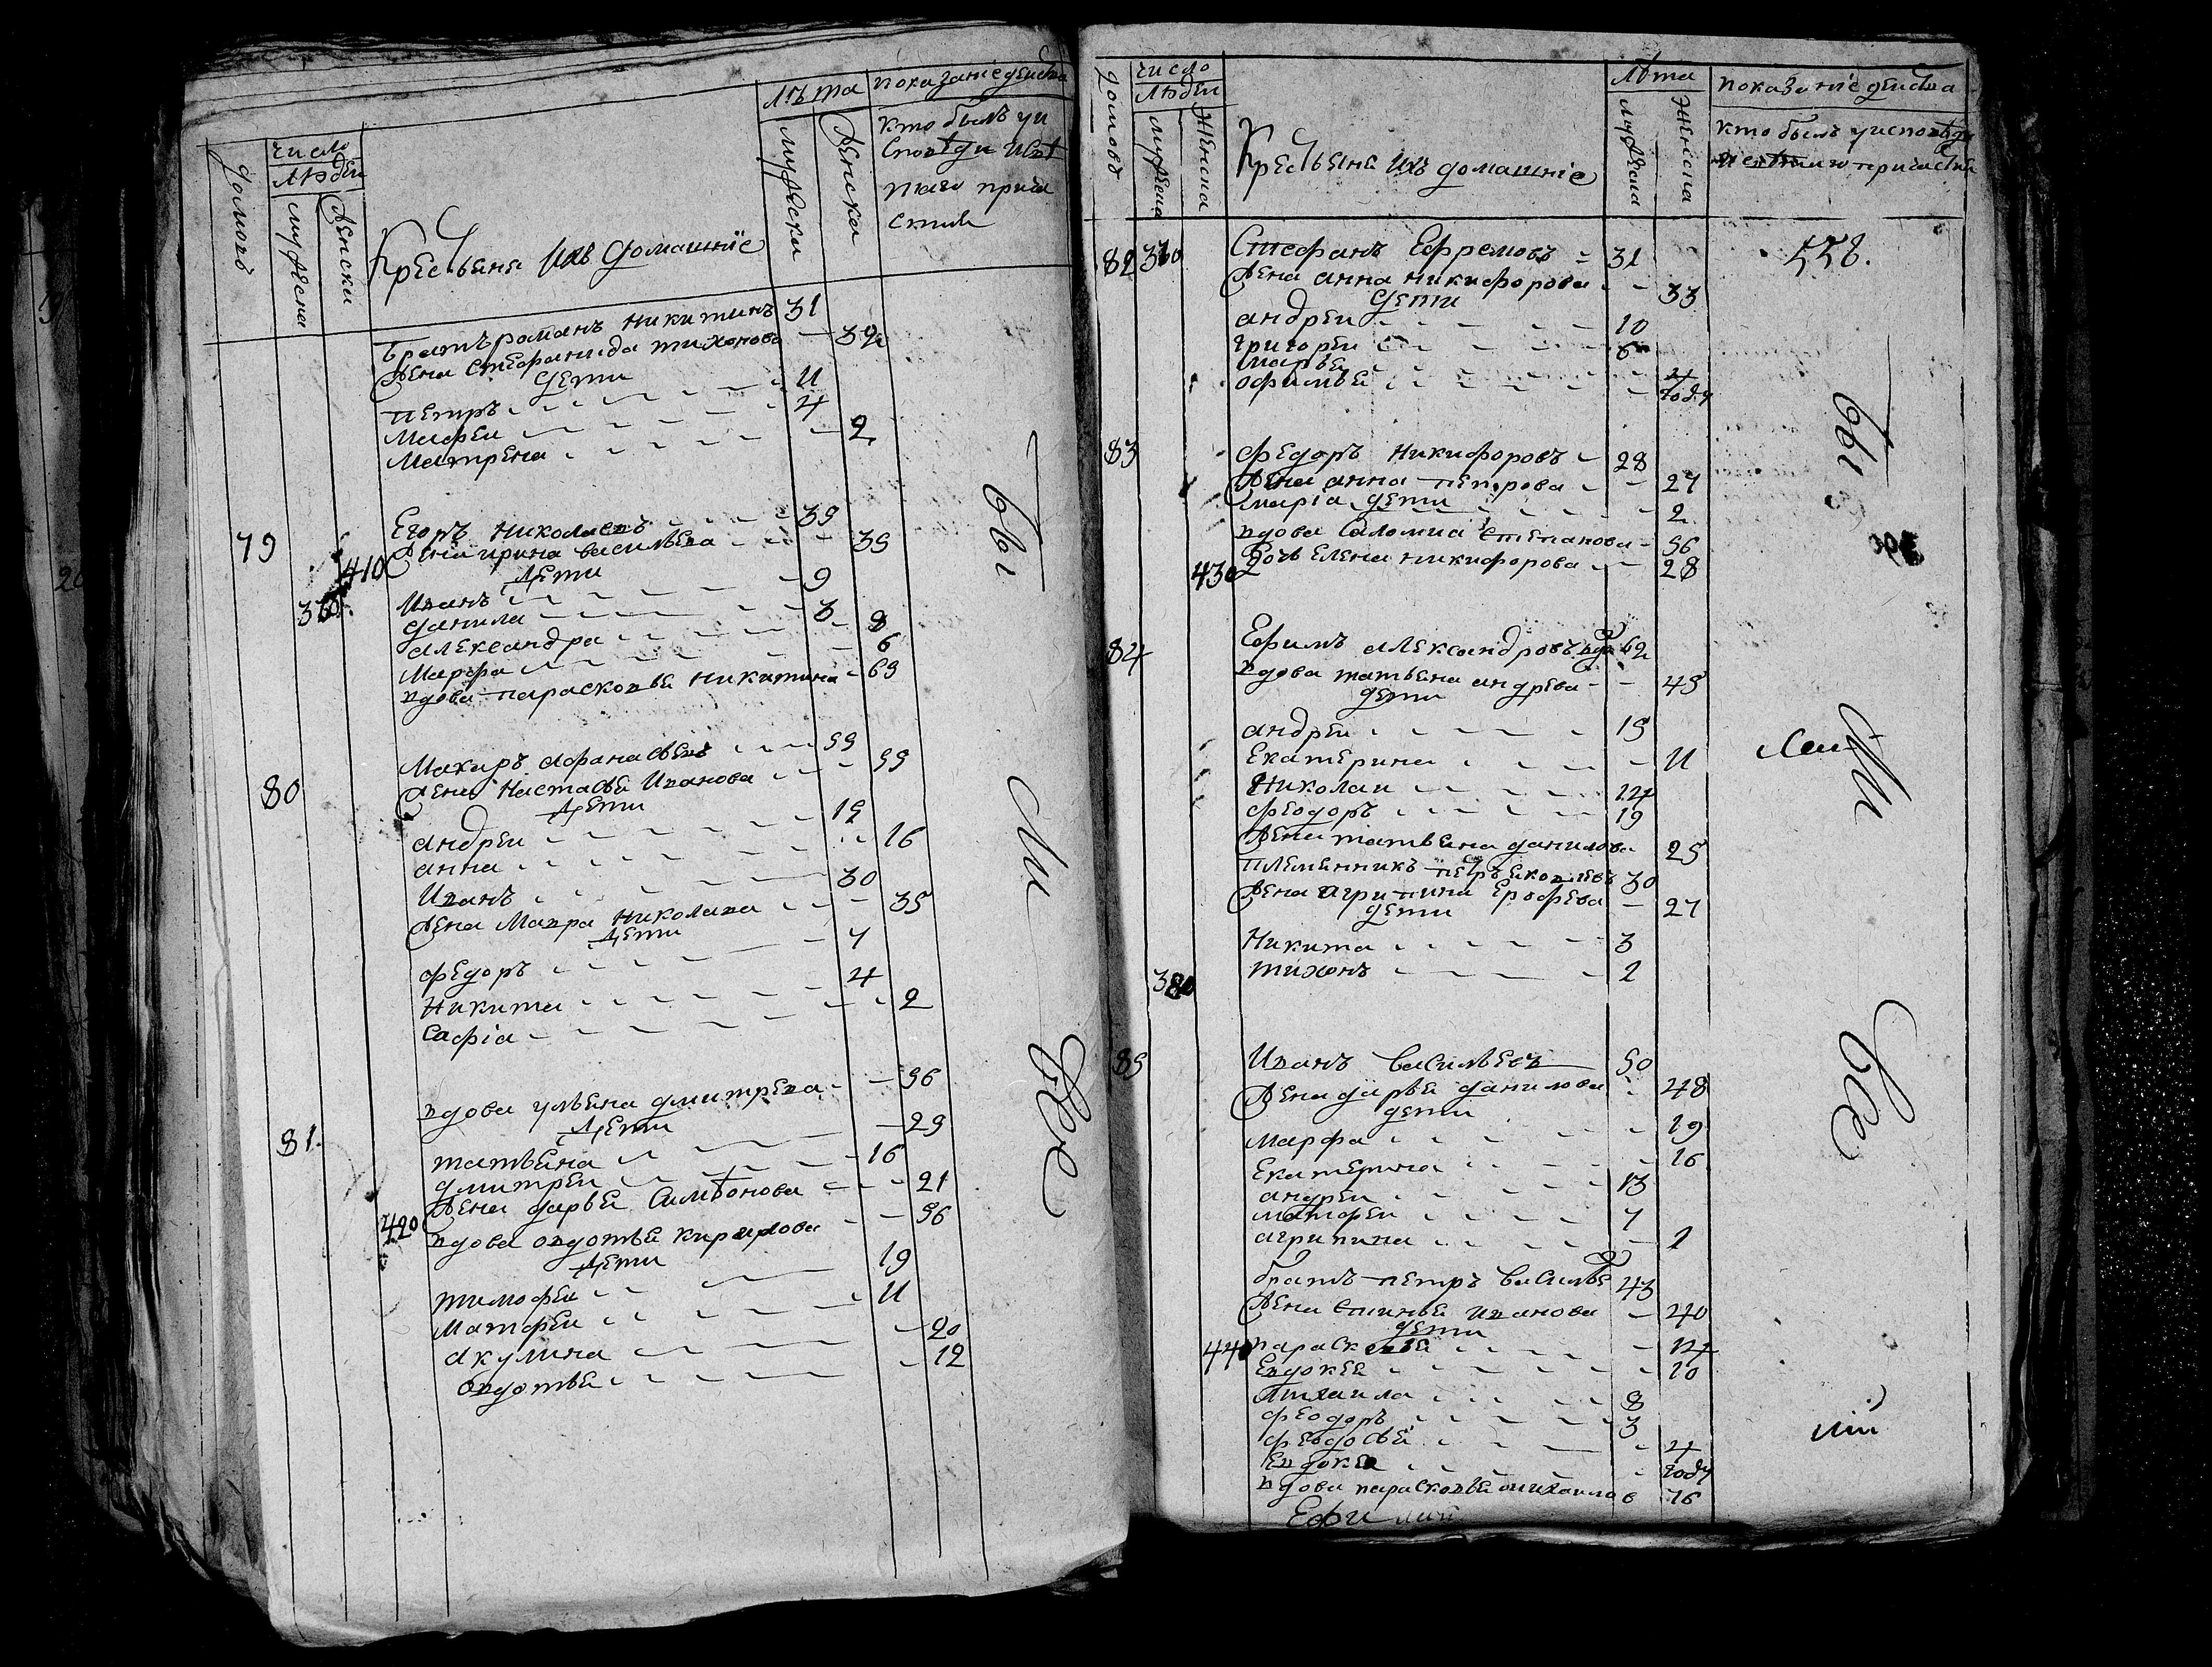 домовъ
число
людеи
мужеска
женски
Крестьяне ихъ домашніе
лѣта
мужески
женска
показаніе деиства
кто былъ у и
споведи и свя
таго прича
стия
братъ романъ никитинъ 31
жена стефанида тихонова – 32
дети
петръ 11
Матфеи 4
Матрена – 2
79 Егоръ Николаевъ 39
410 жена ирина васильева – 39
дети
370 Иванъ 9
данила 3
александра – 8
Марфа – 6
вдова парасковья никитина – 69
80 Макаръ афанасьевъ 59
жена Настасья Иванова – 55
дети
андреи 12
анна 16
Иванъ 30
жена Мавра Николаева – 35
дети
федоръ 7
Никита 4
Софіа – 2
81. вдова ульяна дмитрева – 56
дети
татьяна – 29
дмитреи 16
жена дарья Симѣонова – 21
420 вдова овдотья кирилова – 56
дети
тимофеи 19
Матфеи 11
акулина – 20
Овдотья – 12
бы
ли
все
домовъ
число
людеи
мужеска
женска
Крестьяне ихъ домашніе
лѣта
мужеска
женска
показаніе деиства
кто былъ у исповѣди
и святаго причастия
558.
82 Стефанъ Ефремовъ 31
жена анна никифорова – 33
дети
андреи 10
григореи 6
марья – 4
офимья – году
83 федоръ Никифоровъ 28
жена анна петрова – 27
маріа дети 2
вдова Саломиа степанова – 56
430 дочь елена никифорова – 28
84 Ефимъ александровъ вдо 62
вдова татьяна андрева – 45
дети
андреи 15
Екатерина – 11
Николаи 24
феодоръ 19
жена татьяна данилова 25
племянникъ петръ яковлевъ 30
жена агрипина Ерофева – 27
дети
Никита 3
380 тихонъ 2
85 Иванъ васильевъ 50
жена дарья данилова 48
дети
марфа – 19
Екатерина – 16
андреи 13
матфеи 7
агрипина – 1
братъ петръ василье 43
жена Стинья иванова – 40
дети
440 парасковья – 14
Евдокея – 10
михаила 8
феодоръ 3
федосья – 4
Евдокея – году
вдова парасковья михаилов 76
бы
ли
все